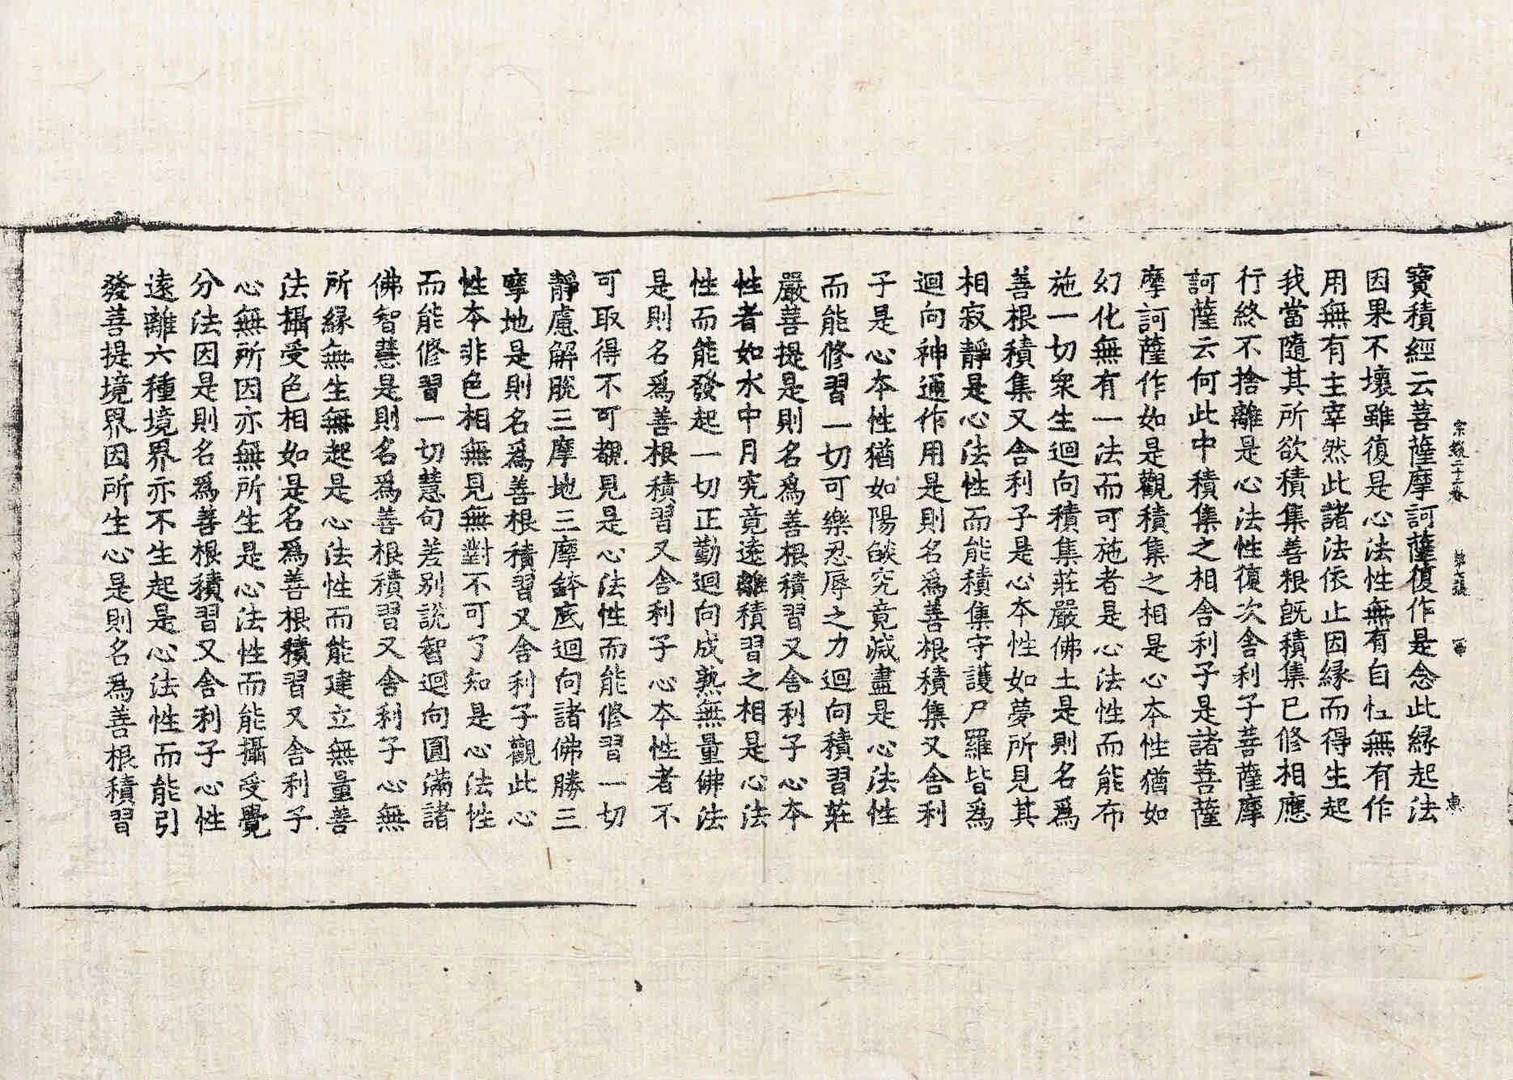 宗鏡二十二卷 第七張 惠
寶積經云菩薩摩訶薩復作是念此縁起法
因果不壞雖復是心法性無有自性無有作
用無有主宰然此諸法依止因縁而得生起
我當隨其所欲積集善根旣積集已修相應
行終不捨離是心法性復次舍利子菩薩摩
訶薩云何此中積集之相舍利子是諸菩薩
摩訶薩作如是觀積集之相是心本性猶如
幻化無有一法而可施者是心法性而能布
施一切衆生迴向積集莊嚴佛土是則名爲
善根積集又舍利子是心本性如夢所見其
相寂靜是心法性而能積集守護尸羅皆爲
迴向神通作用是則名爲善根積集又舍利
子是心本性猶如陽燄究竟滅盡是心法性
而能修習一切可樂忍辱之力迴向積習莊
嚴菩提是則名爲善根積習又舍利子心本
性者如水中月究竟遠離積習之相是心法
性而能發起一切正勤迴向成熟無量佛法
是則名爲善根積習又舍利子心本性者不
可取得不可覩見是心法性而能修習一切
靜慮解脫三摩地三摩鉢底迴向諸佛勝三
摩地是則名爲善根積習又舍利子觀此心
性本非色相無見無對不可了知是心法性
而能修習一切慧句差别說智迴向圓滿諸
佛智慧是則名爲善根積習又舍利子心無
所縁無生無起是心法性而能建立無量善
法攝受色相如是名爲善根積習又舍利子
心無所因亦無所生是心法性而能攝受覺
分法因是則名爲善根積習又舍利子心性
遠離六種境界亦不生起是心法性而能引
發菩提境界因所生心是則名爲善根積習